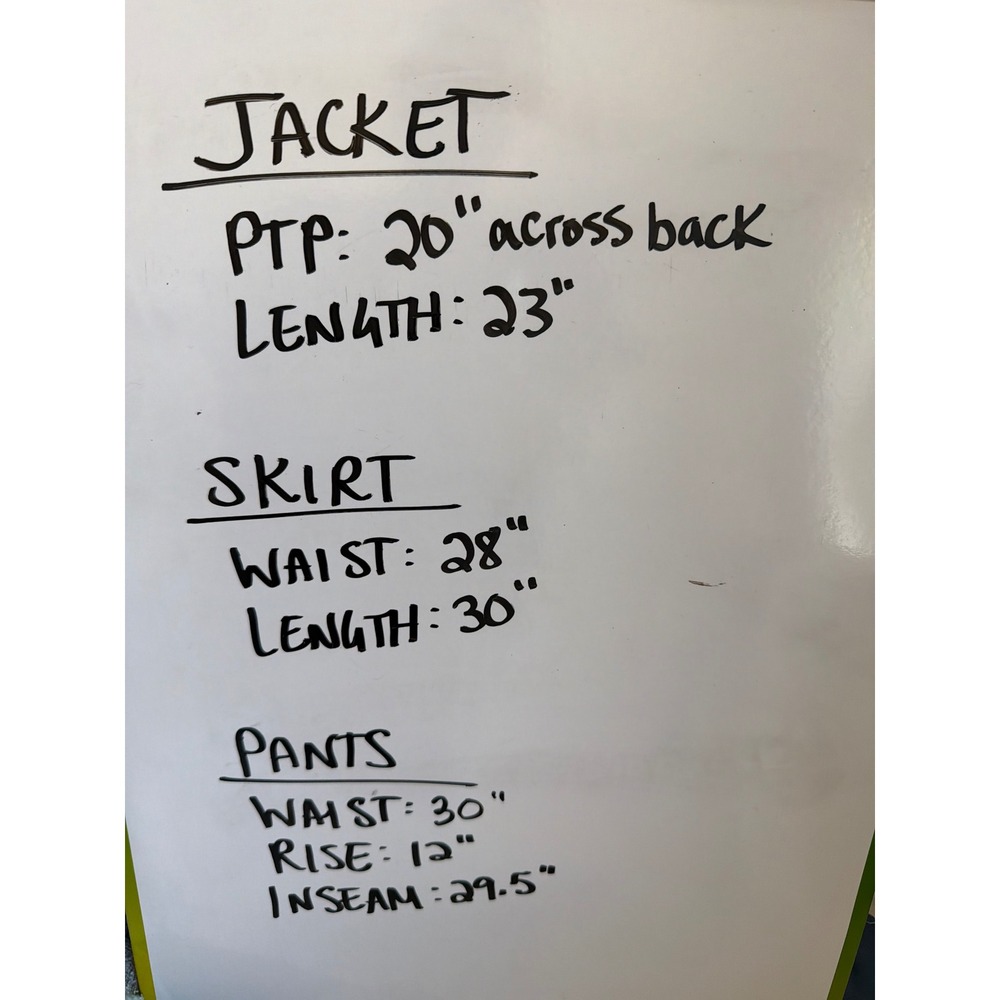 JACKET
PTP: 20" across back
LENGTH: 23"
SKIRT
WAIST: 28"
LENGTH: 30"
PANTS
WAIST: 30"
RISE: 12"
INSEAM: 29.5"